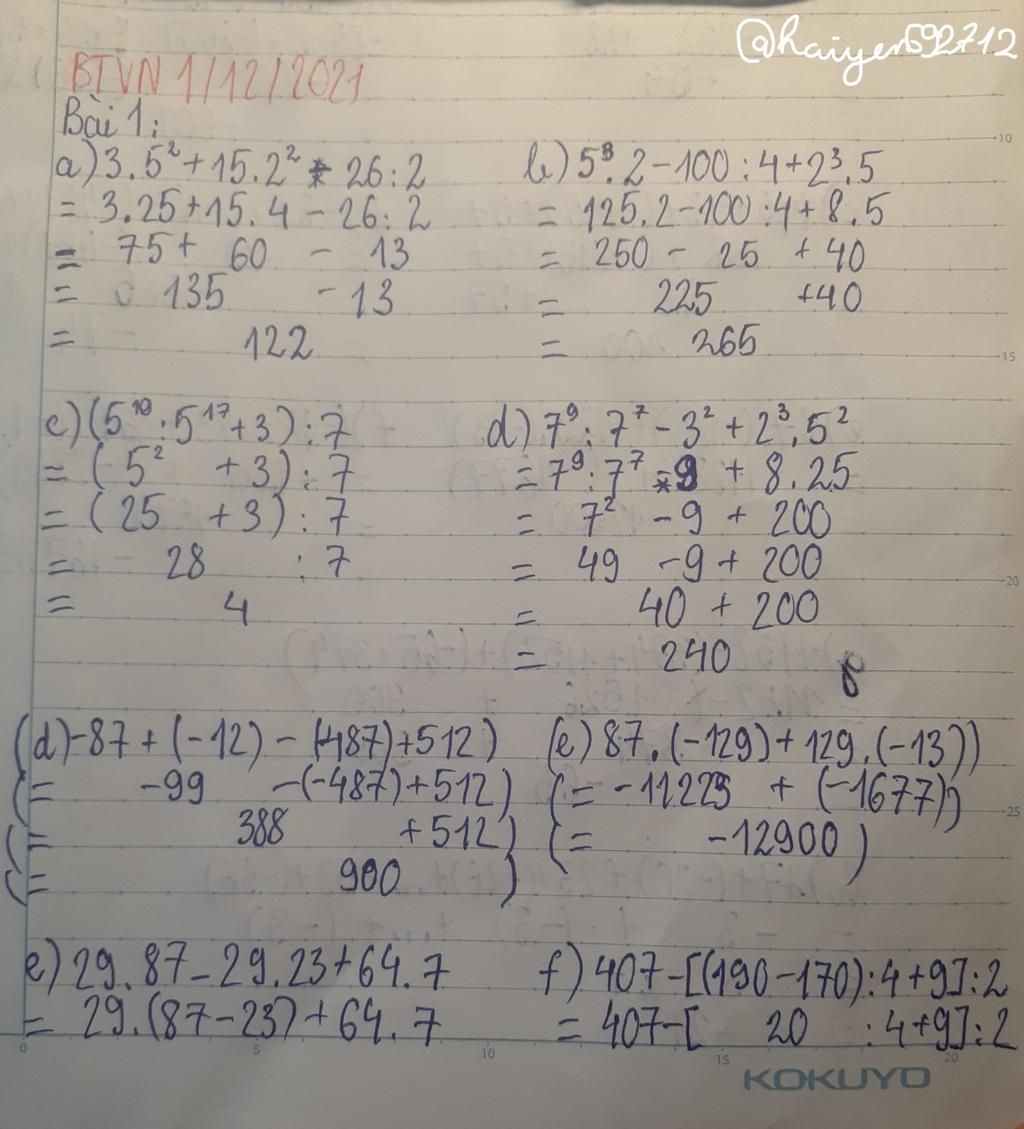 @haiyen592712
BTVN 1/12/2021
Bài 1:
a) 3.5² + 15.2² - 26:2
= 3.25 + 15.4 - 26:2
= 75 + 60 - 13
= 135 - 13
= 122
b) 5³.2 - 100:4 + 2³.5
= 125.2 - 100:4 + 8.5
= 250 - 25 + 40
= 225 + 40
= 265
c) (5¹⁹:5¹⁷ + 3):7
= (5² + 3):7
= (25 + 3):7
= 28 :7
= 4
d) 7⁹:7⁷ - 3² + 2³.5²
= 7⁹:7⁷ - 9 + 8.25
= 7² - 9 + 200
= 49 - 9 + 200
= 40 + 200
= 240
(d) -87 + (-12) - (-487) + 512)
(= -99 - (-487) + 512)
(= 388 + 512)
(= 900 )
(e) 87.(-129) + 129.(-13))
(= -11223 + (-1677))
(= -12900 )
e) 29.87 - 29.23 + 64.7
= 29.(87 - 23) + 64.7
f) 407 - [(190 - 170):4 + 9]:2
= 407 - [ 20 :4 + 9]:2
KOKUYO
10
15
20
25
0
5
10
15
20